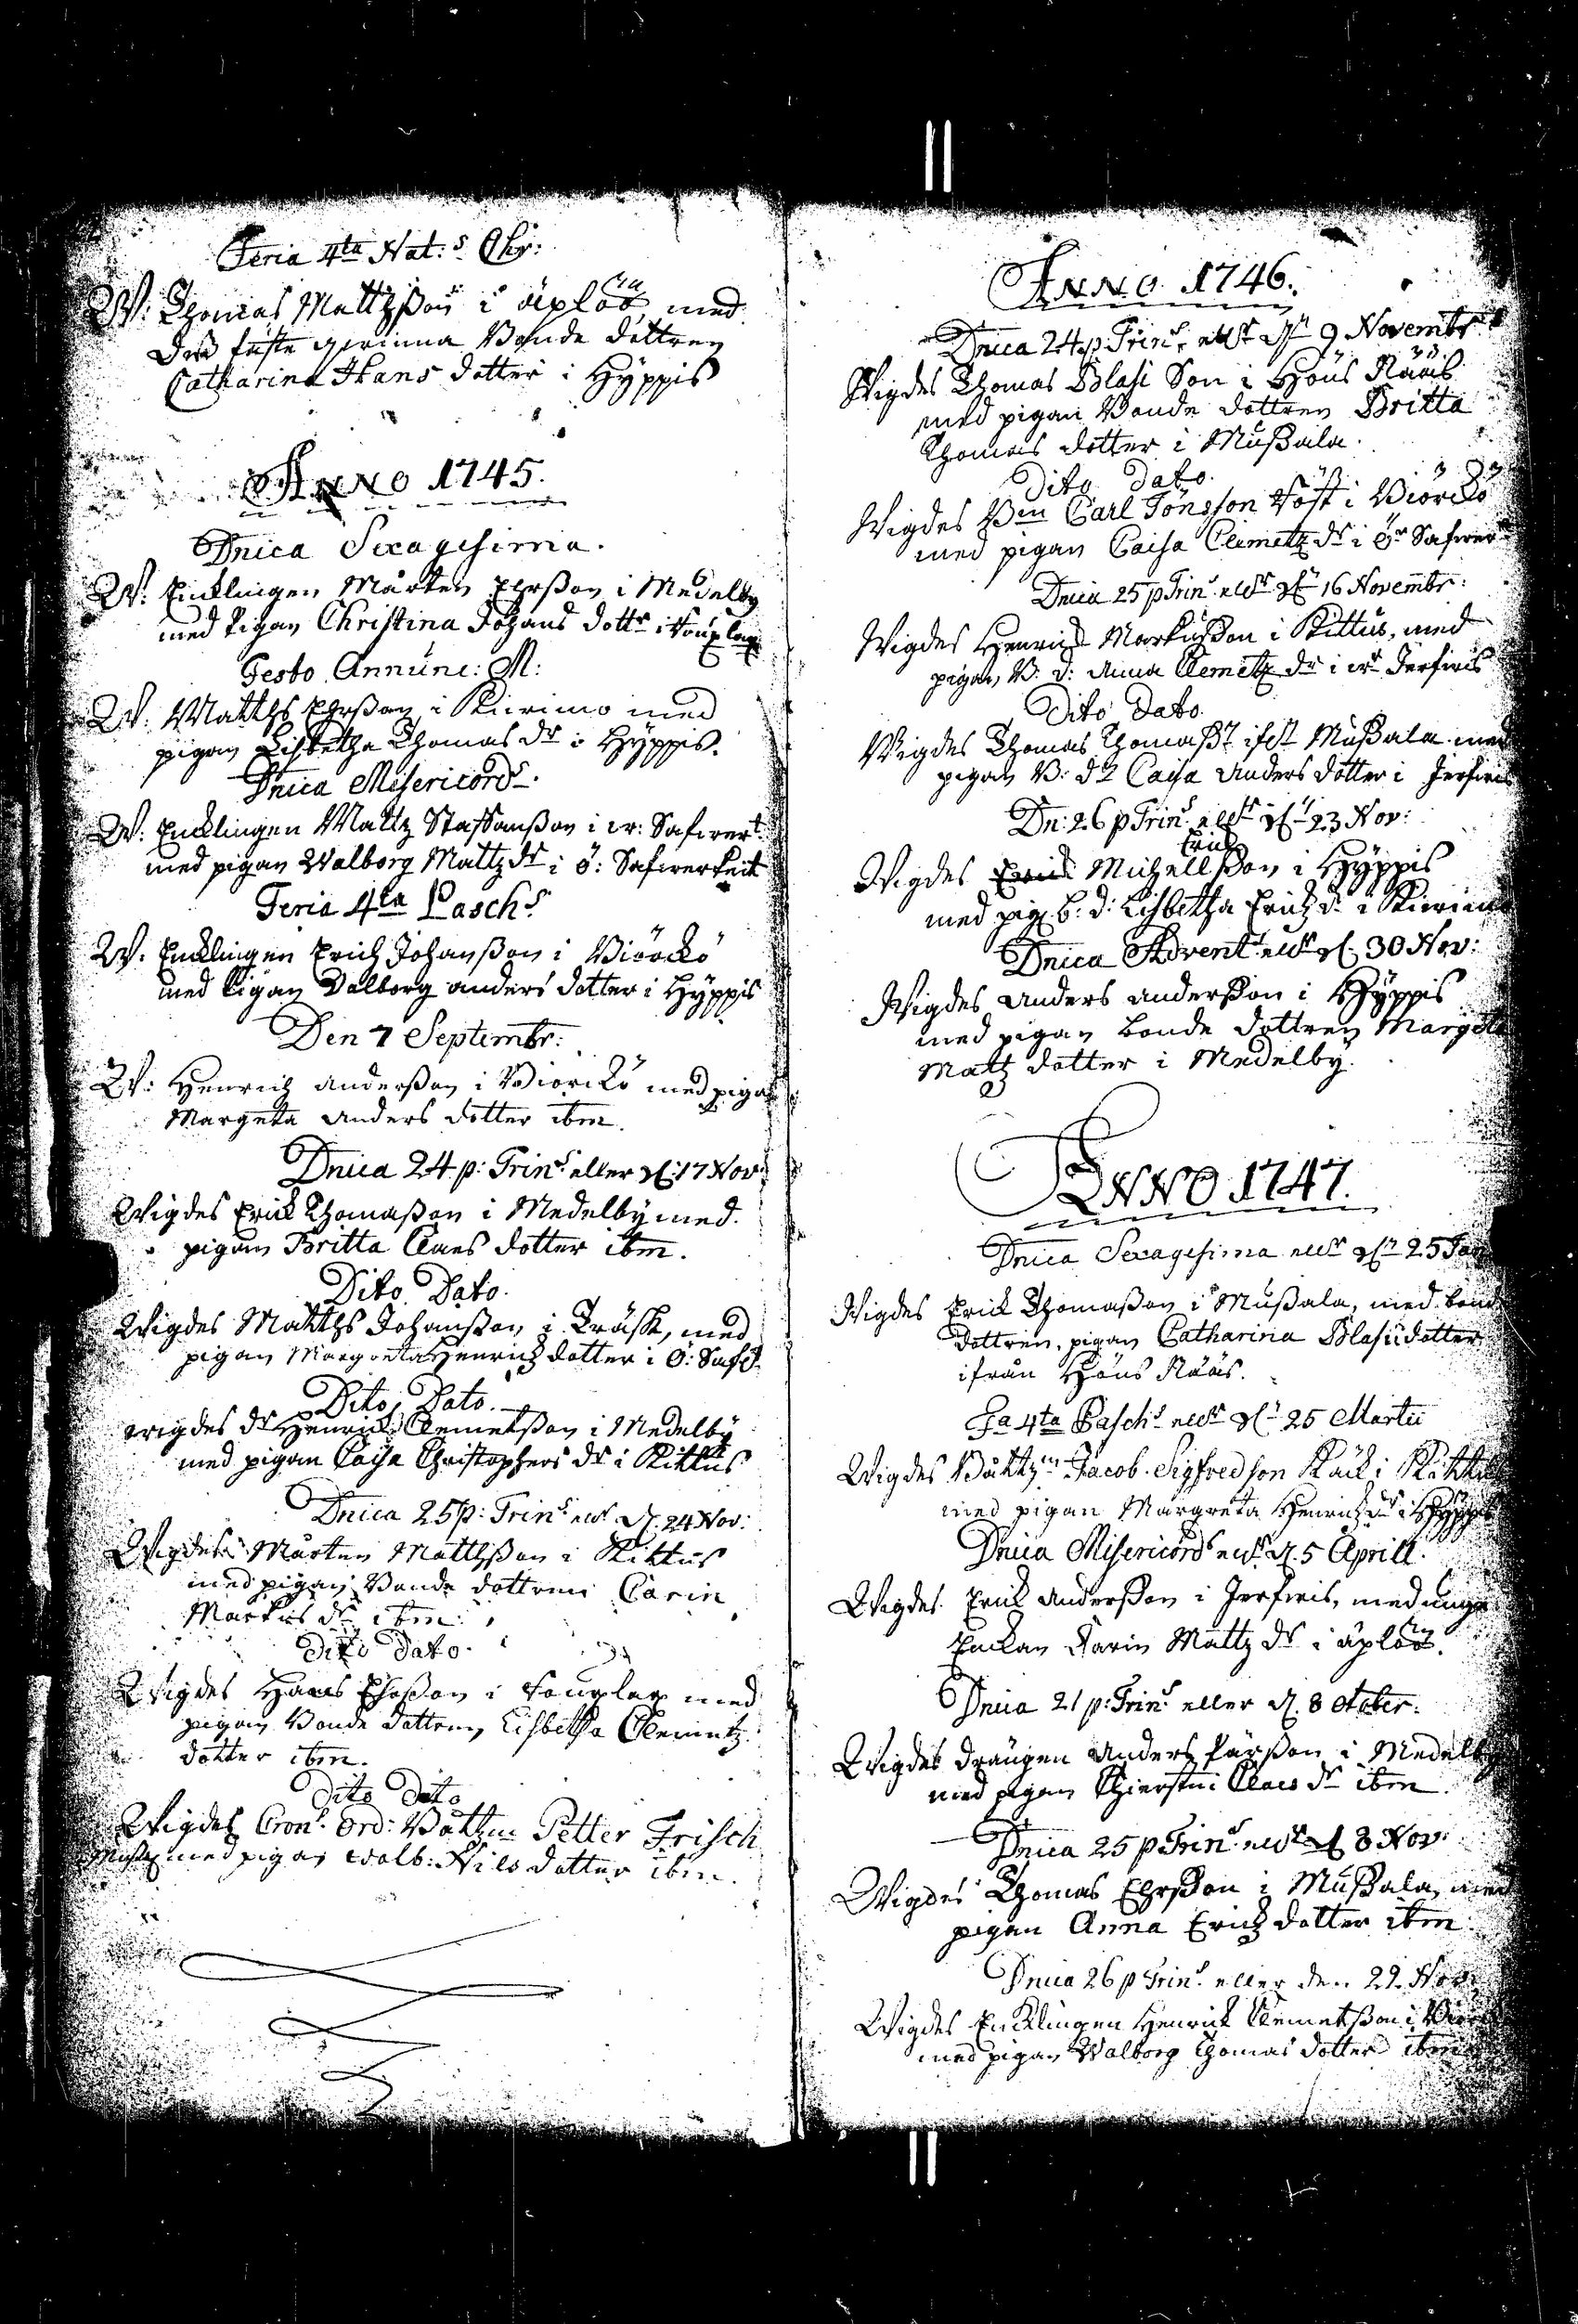 Feria 4ta Nat:s Chr:
W: Thomas Mattzßon i äplöö, med
deß fäste qwinna Bonde dottren
Catharina Hans dotter i Hyppis
Anno 1745.
Dnica Sexagesima.
W: Encklingen Mårten Ehrßon i Medelby
med Pigan Christina Johans dottr i
Festo Annunc: M:
W: Matths Ehrßon i Kiwimo med
pigan Lisbetha Thomas dr i Hyppis.
Dnica Misericord:
W: Encklingen Mattz Staffanßon i w: Safwert
med pigan Walborg Mattz dr i ö: Safwerkeit
Feria 4ta Pasch:s
W. Encklingen Erich Johanßon i Biörckö
med Pigan Valborg anders dotter i Hyppis
Den 7 Septembr:
W: Henrich anderßon i Biörckö med pigan
Margeta anders dotter ibm.
Dnica 24 p: Trin:s eller d: 17 Nov:
Wigdes Erick Thomaßon i Medelby med
pigan Britta Claes dotter ibm.
Dito Dato.
Wigdes Matths Johanßon i Träsk, med
pigan Margreta Henrichz dotter i Ö: Saf
Dito Dato.
wigdes dr Henrick Clemetßon i Medelby
med pigan Caisa Christophers dr i Kittus
Dnica 25 p: Trin:s ellr d. 24 Nov:
Wigdes Mårten Matthßon i Kittus
med pigan Bonde dottren Carin
Markus dr ibm:
Dito Dato.
Wigdes Hans Ehrßon i med
pigan Bonde dottren Lisbetha Clemetz
dotter ibm.
Dito Dato
Wigdes Cron: Ord: Båtzm Petter Frisch
med pigan walb: Nils dotter ibm.
Anno 1746.
Dnica 24 p Trin:s ellr dn 9 Novembr:
Wigdes Thomas Blasi Son i Höns Nääs
med pigan Bonde dottren Britta
Thomas dotter i Mußala.
Dito dato.
Wigdes Carl Jönsson Töst i Biörckö
med pigan Caisa Clemetz dr i Ör Safwer
Dnica 25 p Trin:s ellr dn 16 Novembr:
Wigdes Henrich Markusßon i Kittus, med
pigan B: d: Anna Clemetz dr i wr Jerfwis
Dito Dato.
Wigdes Thomas Thomaß: Mußala med
pigan B: dr Caisa Anders dotter i Jerfwis
Dn: 26 p Trin:s ellr dn 23 Nov:
Erich
Wigdes Michellßon i Hyppis
med pig: b: d: Lisbetha Erichz dr i Kiwimo
Dnica Advent: ellr d. 30 Nov:
Wigdes anders anderßon i Hyppis
med pigan bonde dottren Margeta
Matz dotter i Medelby.
ANNO 1747.
Dnica Sexagesima ellr dn 25 Jan
Wigdes Erick Thomaßon i Mußala, med bonde
dottren, pigan Catharina Blasii dotter
ifrån Höns Nääs.
Fa 4ta Pasch:s ellr dn 25 Martii
Wigdes Båttzm Jacob Sigfredson Käck i
med pigan Margreta Henrichz dr i Hyppis
Dnica Misericord:s ellr d. 5 Aprill.
Wigdes Erick Anderßon i Jerfwis, med unga
Enckan Karin Mattz dr i äplöö.
Dnica 21 p: Trin:s eller d. 8 Octber:
Wigdes drängen Anders Pärßon i Medelby
med pigan Chierstin Claes dr ibm
Dnica 25 p Trin:s ellr d 8 Nov:
Wigdes Thomas Ehrßon i Mußala, med
pigan Anna Erichz dotter ibm.
Dnica 26 p Trin:s eller den 22. Nov:
Wigdes Encklingen Henrick Clemetßon i
med pigan Walborg Thomas dotter ibm